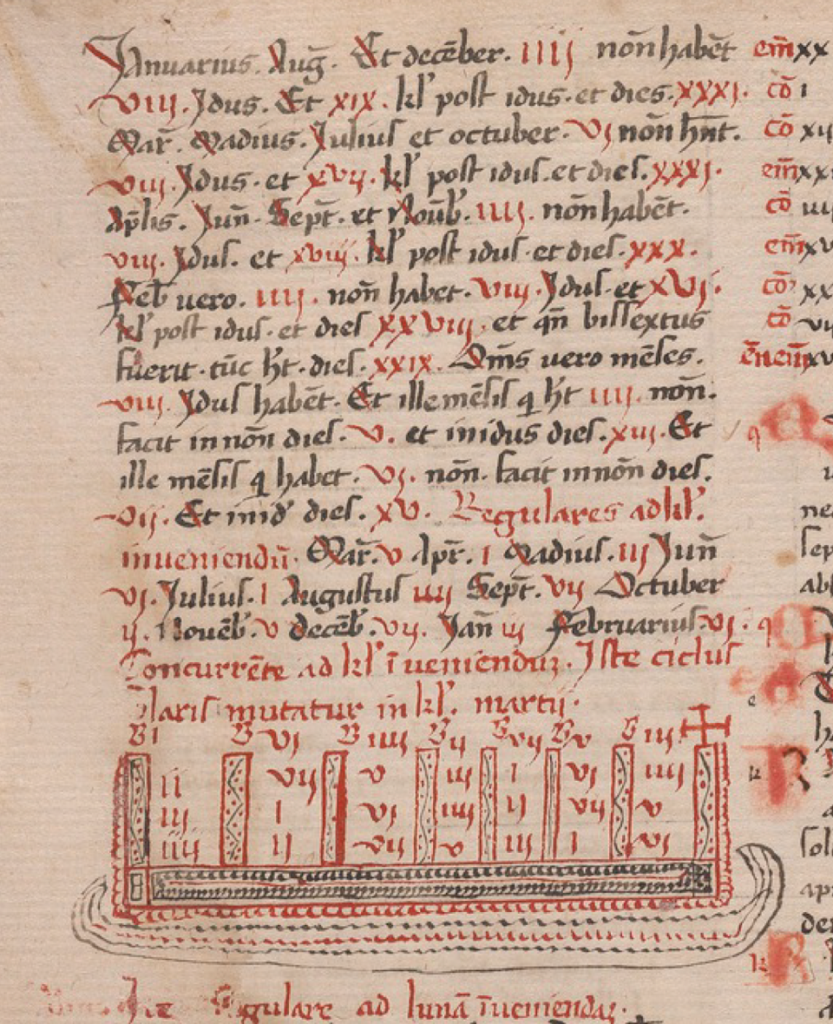 Januarius. Aug̅. Et decēber. iiij non̄ habēt
viij. Jdus. Et xix. kl' post idus. et dies. xxxj.
Mar̄. Madius. Julius et octuber. vj non̄ hn̄t.
viij. Jdus. et xvij. kl' post idus. et dies. xxxj.
Ap̄lis. Jun̄. Sept̄. et Nou̅b'. iiij. non̄ habēt.
viij. Jdus. et xviij. kl' post idus. et dies. xxx.
Feb' uero. iiij. non̄ habet. viij. Jdus. et xvj.
kl' post idus. et dies xxviij. et qn̄ bissextus
fuerit. tūc h't. dies. xxix. Om̄s uero mēses.
viij. Jdus habēt. Et ille mēsis q h't iiij. non̄.
facit in non̄ dies. v. et in idus dies. xiij. Et
ille mēsis q habet. vj. non̄. facit in non̄ dies.
vij. Et in id' dies. xv. Regulares ad kl'.
inueniendū. Mar̄. v Apr̄. i Madius. iij Jun̄
vj. Julius. i Augustus iiij Sept̄. vij Octuber
ij. Nouēb'. v decēb'. vij. Jan̄ iij Februarius. vj.
Concurrēte ad kl' īueniendum. Iste ciclus
laris mutatur in kl'. martij.
B i B vj B iiij B ij B vij B v B iij
ii vij v iij i vj iiij
iii i vj iiij ij vij v
iiij ij vij v iij i vj
gulare ad lunā īueniendam.
em̄ xx
cō i
cō
em̄
cō
em̄
cō
cō